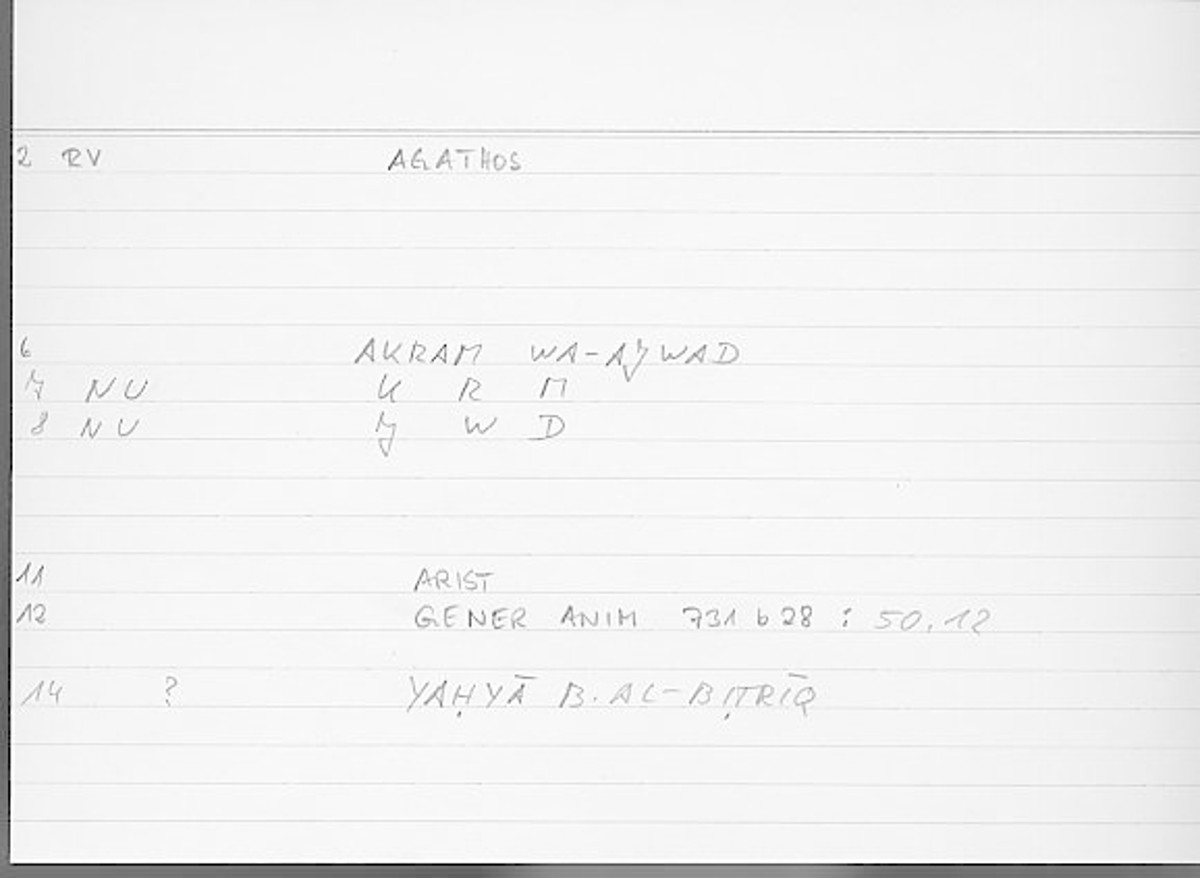 2 RV AGATHOS
6 AKRAM WA-AǰWAD
7 NU K R M
8 NU J W D
11 ARIST
12 GENER ANIM 731 b 28 : 50.12
14 ? YAḤYĀ B. AL-BIṬRĪQ